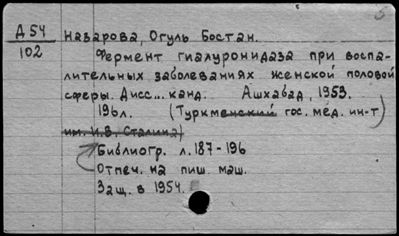 Д 54
102
Назарова, Огуль Бостан.
Фермент гиалуронидаза при воспа-
лительных заболеваниях женской половой
сферы. Дисс... канд. Ашхабад, 1953.
196л. (Туркменский гос. мед. ин-т
им. И.В. Сталина)
Библиогр. л. 187-196
Отпеч. на пиш. маш.
Защ. в 1954.